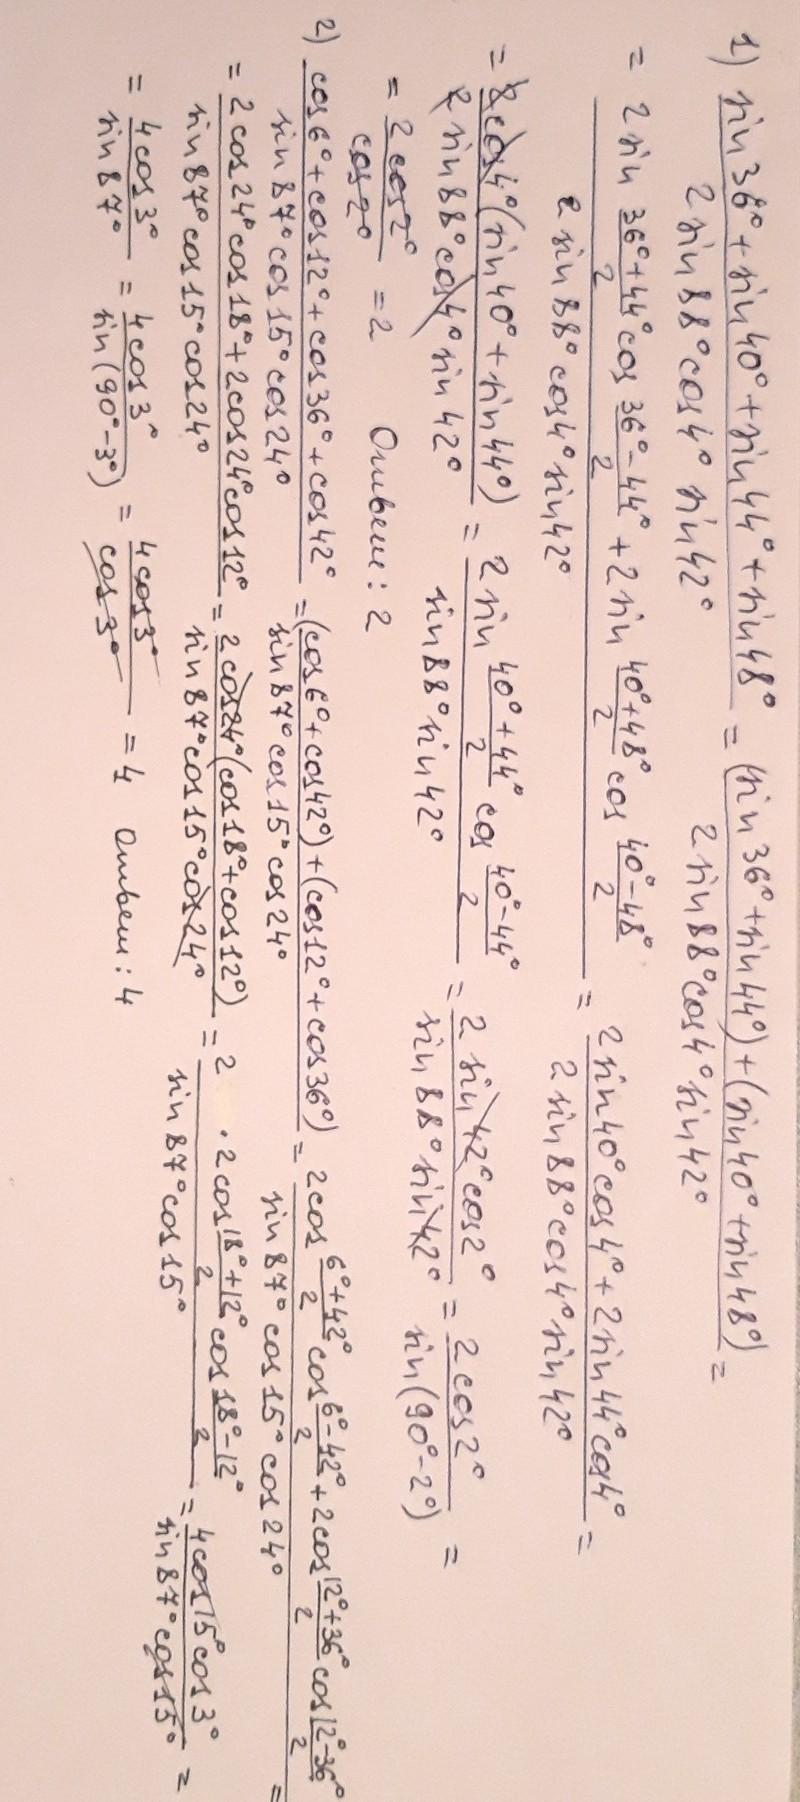 1) (sin36°+sin40°+sin44°+sin48°)/(2sin88°cos4° sin42°) = ((sin36°+sin44°)+(sin40°+sin48°))/(2sin88°cos4°sin42°) =
= (2sin (36°+44°)/2 cos (36°-44°)/2 + 2sin (40°+48°)/2 cos (40°-48°)/2)/(2sin88°cos4°sin42°) = (2sin40°cos4°+2sin44°cos4°)/(2sin88°cos4°sin42°) =
= (2cos4°(sin40°+sin44°))/(2sin88°cos4°sin42°) = (2sin (40°+44°)/2 cos (40°-44°)/2)/(sin88°sin42°) = (2sin42°cos2°)/(sin88°sin42°) = (2cos2°)/(sin(90°-2°)) =
= (2cos2°)/(cos2°) = 2 Ответ: 2
2) (cos6°+cos12°+cos36°+cos42°)/(sin87°cos15°cos24°) = ((cos6°+cos42°)+(cos12°+cos36°))/(sin87°cos15°cos24°) = (2cos (6°+42°)/2 cos (6°-42°)/2 + 2cos (12°+36°)/2 cos (12°-36°)/2)/(sin87°cos15°cos24°) =
= (2cos24°cos18°+2cos24°cos12°)/(sin87°cos15°cos24°) = (2cos24°(cos18°+cos12°))/(sin87°cos15°cos24°) = (2·2cos (18°+12°)/2 cos (18°-12°)/2)/(sin87°cos15°) = (4cos15°cos3°)/(sin87°cos15°) =
= (4cos3°)/(sin87°) = (4cos3°)/(sin(90°-3°)) = (4cos3°)/(cos3°) = 4 Ответ: 4